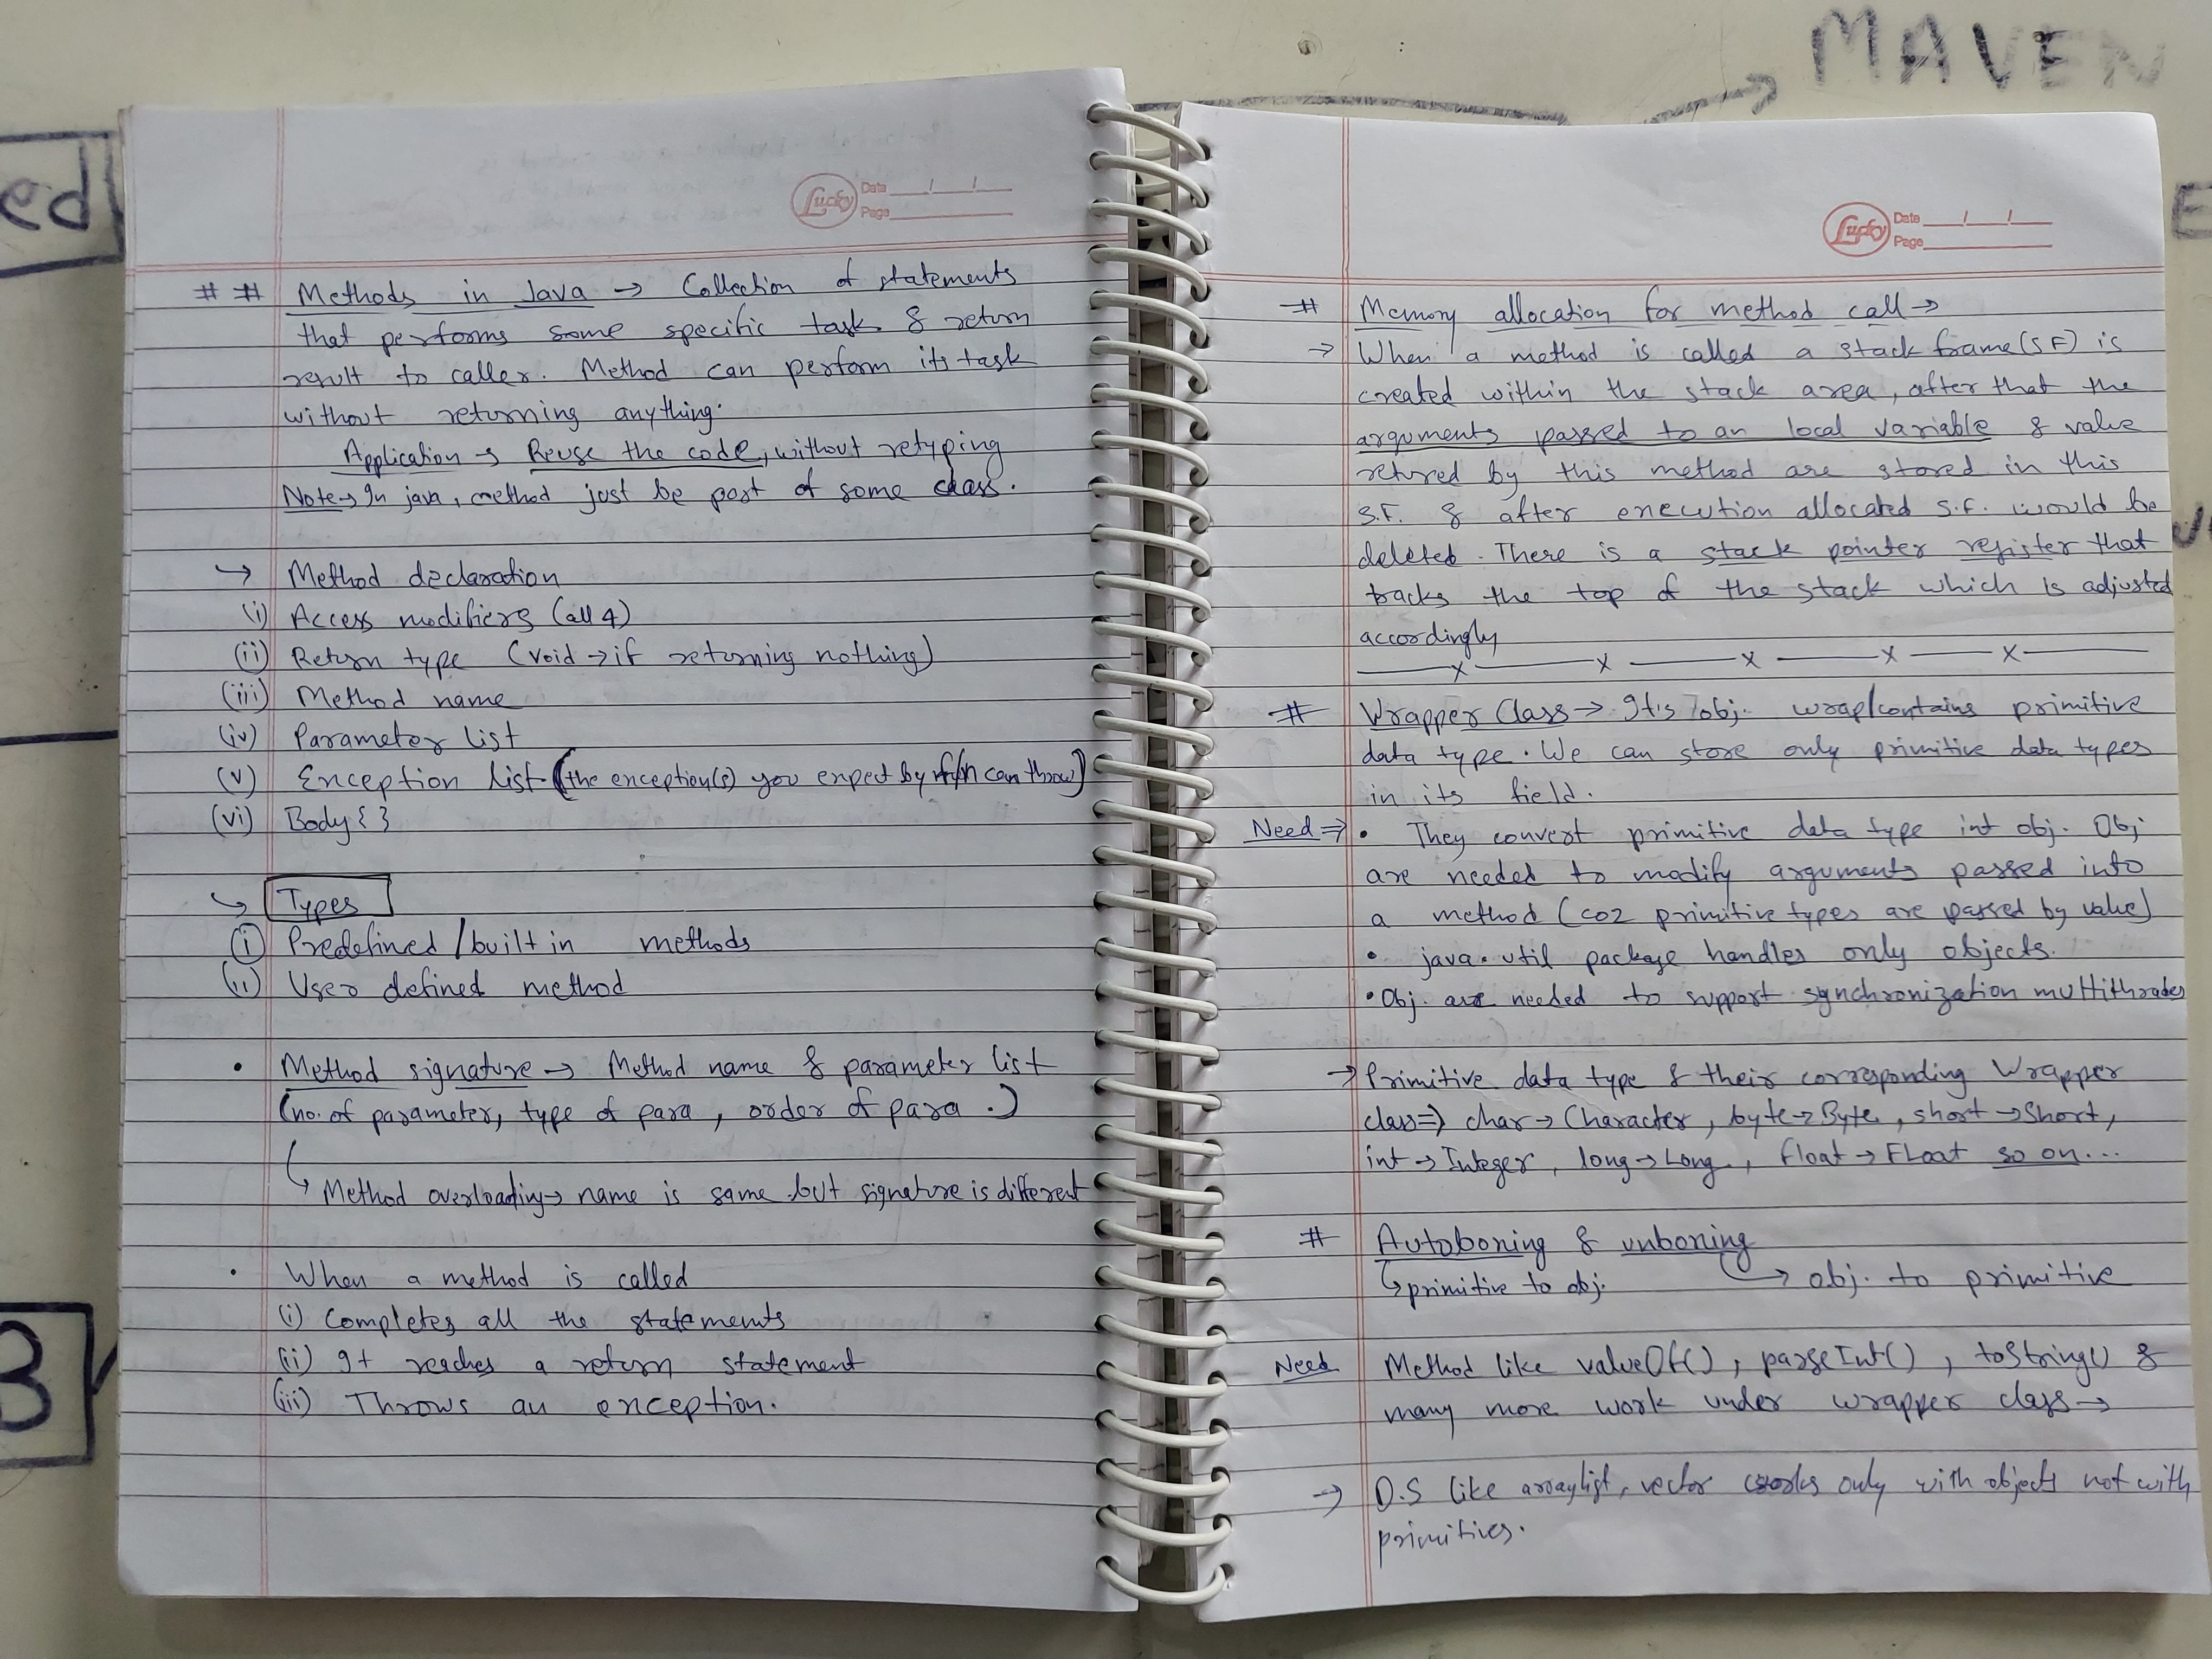 MAVEN
ed
Lucky Date / /
Page
# # Methods in Java → Collection of statements
that performs some specific task & return
result to caller. Method can perform its task
without returning anything.
Application → Reuse the code, without retyping
Note → In java, method just be part of some class.
→ Method declaration
(i) Access modifiers (all 4)
(ii) Return type (void → if returning nothing)
(iii) Method name
(iv) Parameter list
(v) Exception list (the exception(s) you expect by can throw)
(vi) Body { }
→ Types
(i) Predefined / built in methods
(ii) User defined method
• Method signature → Method name & parameter list
(no. of parameter, type of para, order of para.)
→ Method overloading → name is same but signature is different
• When a method is called
(i) Completes all the statements
(ii) It reaches a return statement
(iii) Throws an exception.
3
Lucky Date / /
Page
# Memory allocation for method call →
→ When a method is called a stack frame (S F) is
created within the stack area, after that the
arguments passed to an local variable & value
retured by this method are stored in this
S.F. & after execution allocated S.F. would be
deleted. There is a stack pointer register that
tracks the top of the stack which is adjusted
accordingly
x x x x x
# Wrapper Class → It's obj. wrap/contains primitive
data type. We can store only primitive data types
in its field.
Need ⇒ • They convert primitive data type int obj. Obj
are needed to modify arguments passed into
a method (coz primitive types are passed by value)
• java.util package handles only objects.
• Obj. are needed to support synchronization multithrades
→ Primitive data type & their corresponding Wrapper
class ⇒ char → Character, byte → Byte, short → Short,
int → Integer, long → Long, float → Float so on...
# Autoboxing & unboxing
→ primitive to obj. → obj. to primitive
Need Method like valueOf(), parseInt(), toString() &
many more work under wrapper class →
→ D.S like arraylist, vector works only with objects not with
primitives.